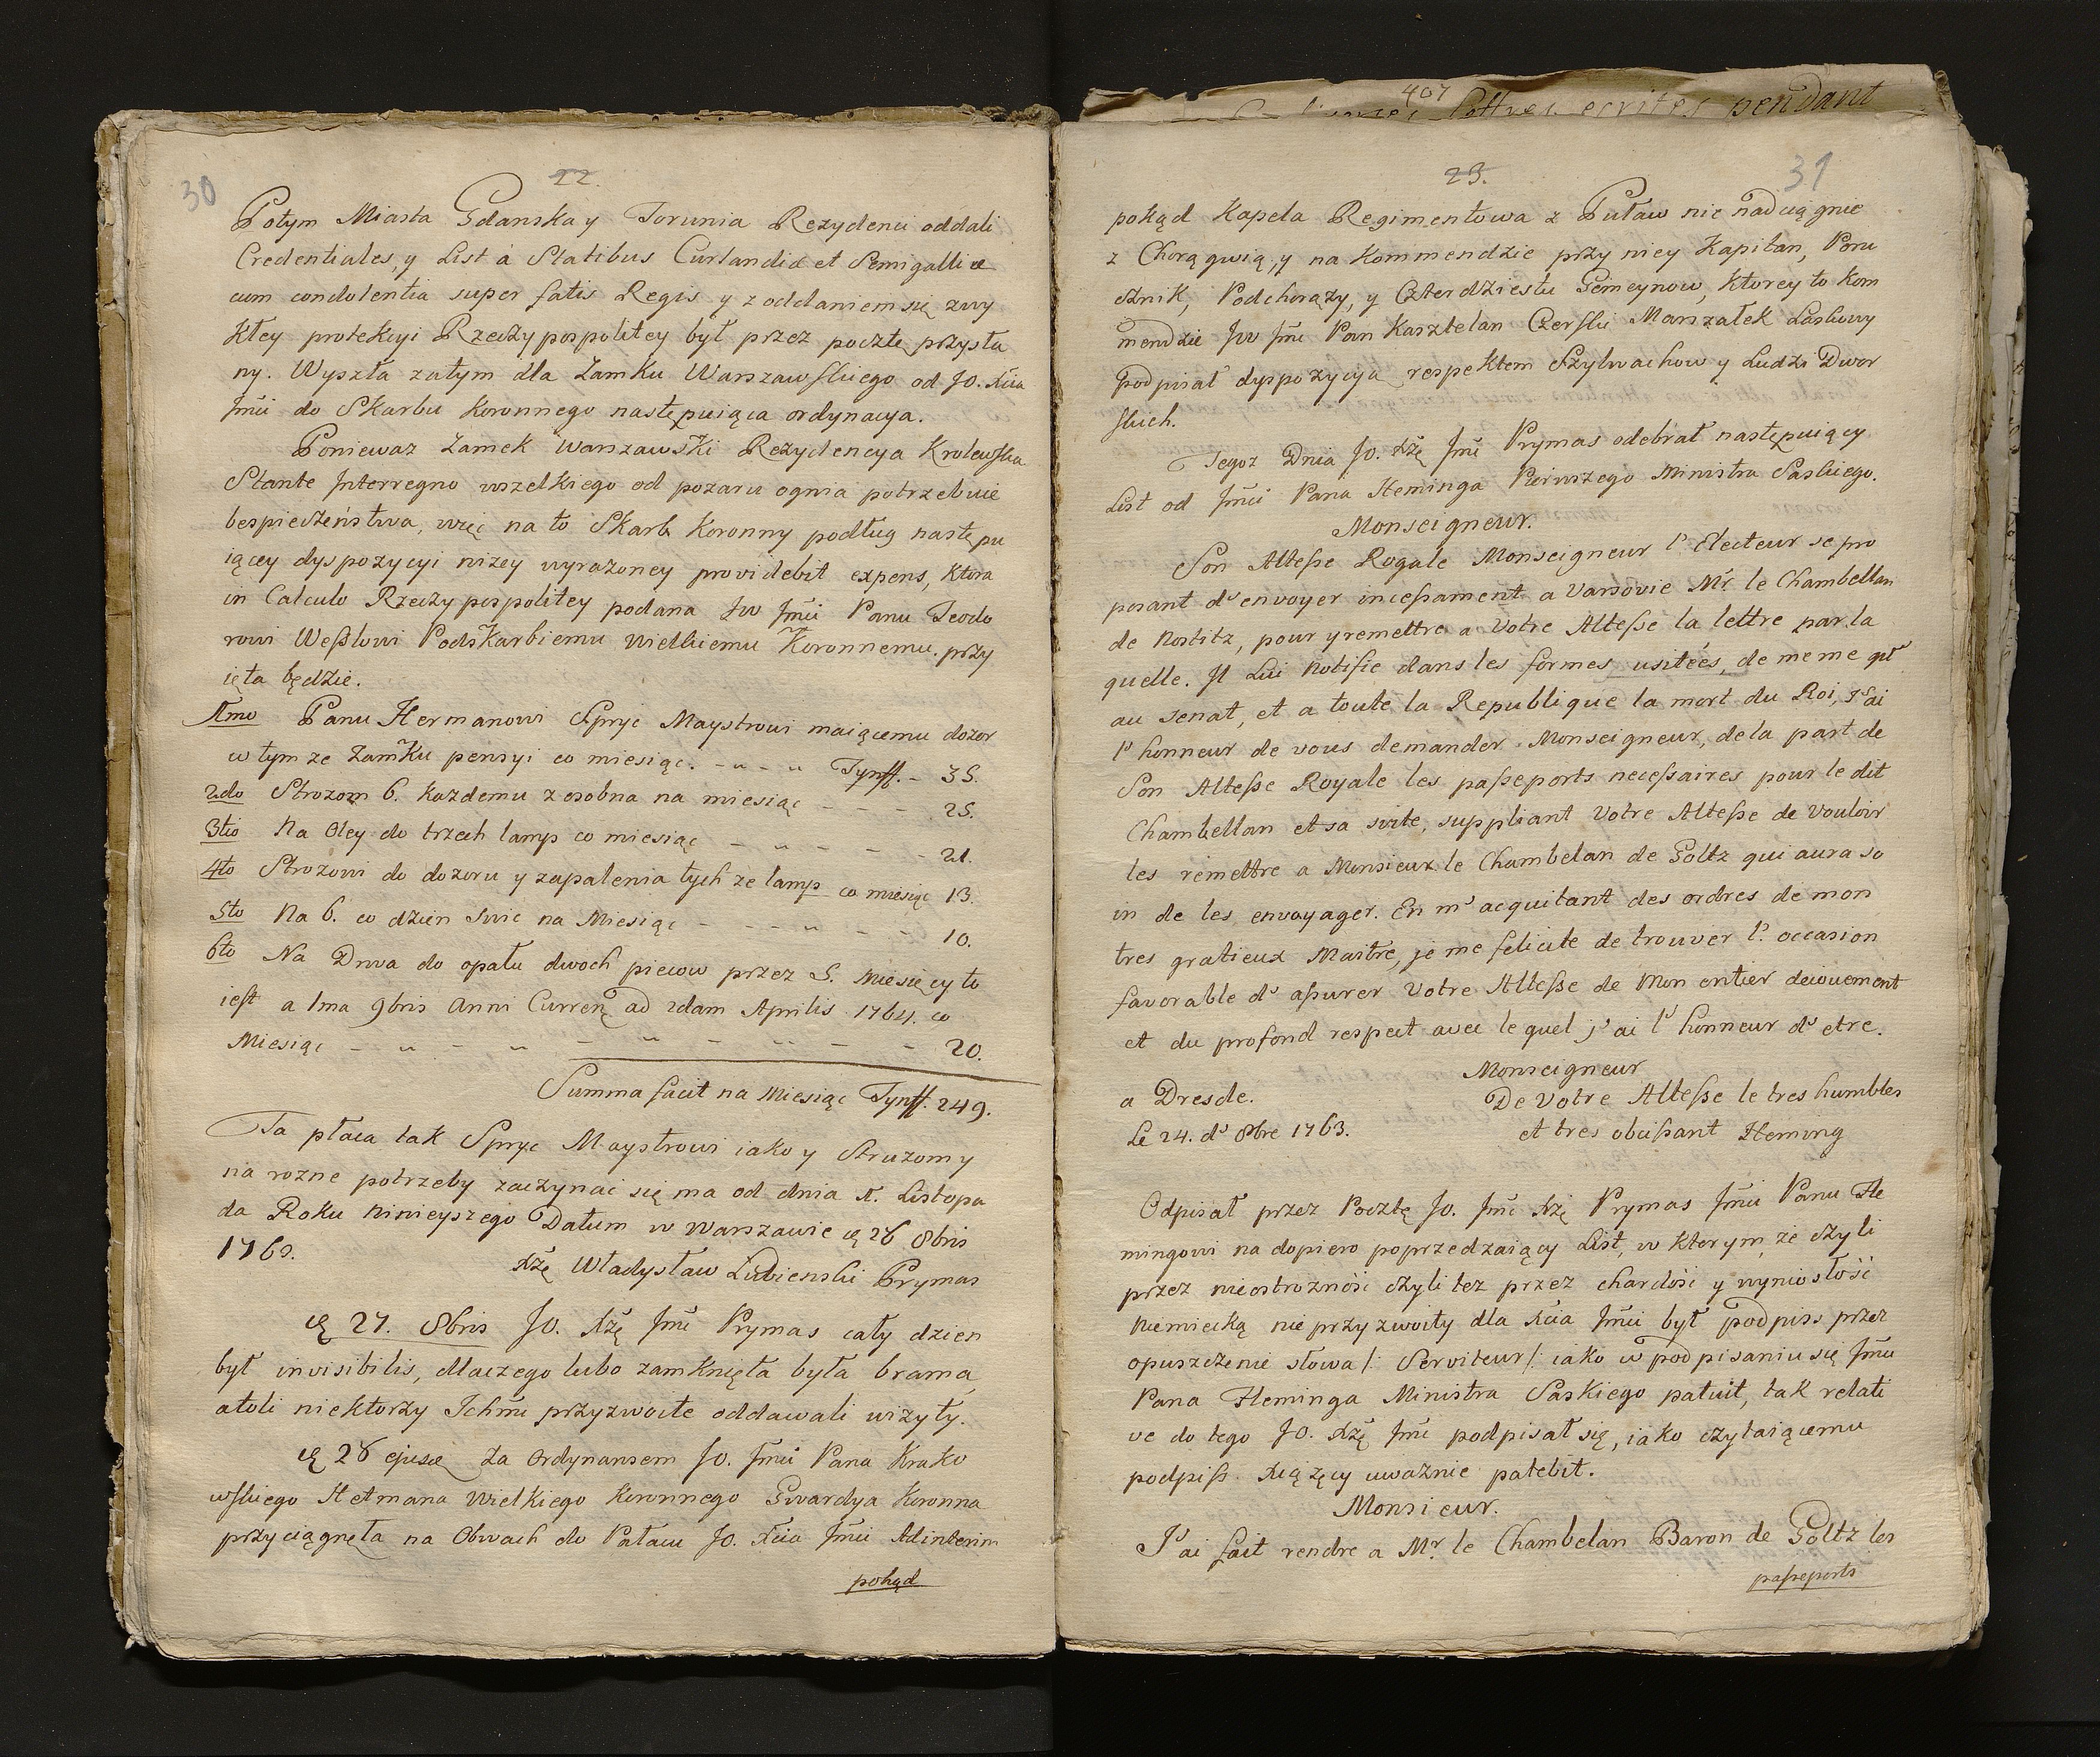 30
22.
Potym Miasta Gdanska y Torunia Rezydenci oddali
Credentiales, y List à Statibus Curlandiæ et Semigalliæ
cum condolentia super fatis Regis y z oddaniem się zwy
kłey protekcyi Rzeczypospolitey był przez pocztę przysła
ny. Wyszła zatym dla Zamku Warszawskiego od JO. Xcia
Jmći do Skarbu Koronnego następuiąca ordynacya.
Poniewaz Zamek Warszawski Rezydencya Krolewska
Stante Interregno wszelkiego od pozaru ognia potrzebuie
bespieczeństwa, więc na to Skarb Koronny podług następu
iącey dyspozycyi nizey wyrazoney providebit expens, ktora
in Calculo Rzeczypospolitey podana JW Jmći Panu Teodo
rowi Weßlowi Podskarbiemu Wielkiemu Koronnemu przy
ięta będzie.
1mo Panu Hermanowi Spryc Maystrowi maiącemu dozor
w tym ze Zamku pensyi co miesiąc. - " - " Tynff. - 35.
2do Strozom 6. kazdemu z osobna na miesiąc - - - - 25.
3tio Na Oley do trzech lamp co miesiąc - " - - - - 21.
4to Strozowi do dozoru y zapalenia tych ze lamp co miesiąc 13.
5to Na 6. co dzien Swic na Miesiąc - - - " - - 10.
6to Na Drwa do opału dwoch piecow przez 5. Miesięcy to
iest a 1ma 9bris Anni Curren. ad 2dam Aprilis 1764. co
Miesiąc - " - " - " - " - - 20.
Summa facit na Miesiąc Tynff. 249.
Ta płaca tak Spryc Maystrowi iako y Struzom y
na rozne potrzeby zaczynać się ma od dnia 1. Listopa
da Roku ninieyszego Datum w Warszawie 26 8bris
1763.
Xżę Władysław Łubienski Prymas
27. 8bris JO. Xżę Jmć Prymas cały dzien
był invisibilis, dlaczego lubo zamknięta była brama,
atoli niektorzy Ichmć przyzwoite oddawali wizyty.
28 ejusd. Za Ordynansem JO. Jmći Pana Krako
wskiego Hetmana Wielkiego Koronnego Gwardya Koronna
przyciągnęła na Obwach do Pałacu JO. Xcia Jmći Adinterim
pokąd
407
Lettres ecrites pendant
23.
31
pokąd Kapela Regimentowa z Puław nie nadciągnie
z Chorągwią, y na Kommendzie przy niey Kapitan, Poru
cznik, Podchorązy, y Czterdziestu Gemeynow, Ktorey to Kom
mendzie JW Jmć Pan Kasztelan Czerski Marszałek Laskowy
podpisał dyspozycyą respektem Szylwachow y Ludzi Dwor
skich.
Tegoz Dnia JO. Xżę Jmć Prymas odebrał następuiący
List od Jmći Pana Fleminga Pierwszego Ministra Saskiego.
Monseigneur.
Son Alteße Rogale Monseigneur l'Electeur se pro
posant d'envoyer inceßament a Varsovie Mr. le Chambellan
de Nostitz, pour y remettre a Votre Alteße la lettre par la
quelle. Il Lui Notifie dans les formes usitées, de meme qu'
au senat, et a toute la Republique la mort du Roi, J'ai
l'honneur de vous demander Monseigneur, de la part de
Son Alteße Royale les paßeports neceßaires pour le dit
Chambellan et sa suite, suppliant Votre Alteße de vouloir
les remettre a Monsieur le Chambelan de Goltz qui aura so
in de les envoyager. En m'acquitant des ordres de mon
tres gratieux Maitre, je me felicite de trouver l'occasion
favorable d'aßurer Votre Alteße de Mon entier devouement
et du profond respect avec le quel j'ai l'honneur d'etre.
Monseigneur
a Dresde. De Votre Alteße le tres humbles
Le 24. d' 8bre 1763. et tres obeißant Fleming
Odpisał przez Pocztę JO. Jmć Xżę Prymas Jmći Panu Fle
mingowi na dopiero poprzedzaiący List, w ktorym, ze czyli
przez nieostroznośc czyli tez przez chardość y wyniosłość
Niemiecką nie przyzwoity dla Xcia Jmći był podpiss przez
opuszczenie słowa /: Serviteur /: iako w podpisaniu się Jmći
Pana Fleminga Ministra Saskiego patuit, tak relati
ve do tego JO. Xżę Jmć podpisał się, iako czytaiącemu
podpiß Xiążęcy uwaznie patebit.
Monsieur.
J'ai fait rendre a Mr. le Chambelan Baron de Goltz les
paßeports